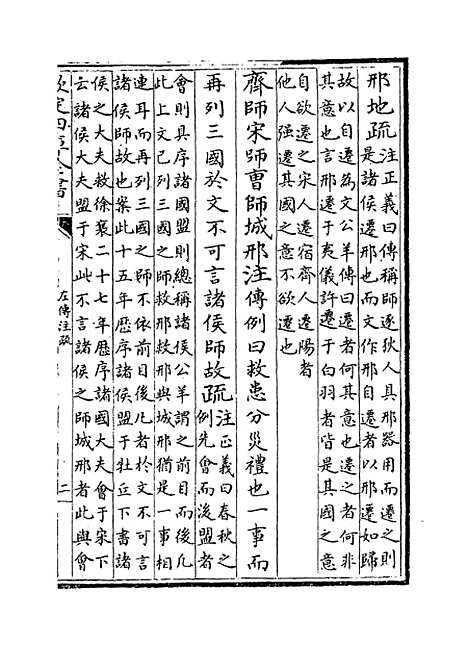 邢地疏
注正義曰傳稱師逐狄人具邢器用而遷之則
是諸侯遷邢也而文作邢自遷者以邢遷如歸
故以自遷為文公羊傳曰遷者何其意也遷之者何非
其意也言邢遷于夷儀許遷于白羽者皆是其國之意
自欲遷之宋人遷宿齊人遷陽者
他人强遷其國之意不欲遷也
齊師宋師曹師城邢注傳例曰救患分災禮也一事而
再列三國於文不可言諸侯師故疏
注正義曰春秋之
例先會而後盟者
會則具序諸國盟則總稱諸侯公羊謂之前目而後凡
此上文已列三國之師救邢救邢與城邢猶是一事相
連耳而再列三國之師不依前目後凡者於文不可言
諸侯師故也案此十五年歷序諸侯盟于牡丘下書諸
侯之大夫救徐襄二十七年歷序諸國大夫會于宋下
云諸侯大夫盟于宋此不言諸侯之師城邢者此與會
欽定四庫全書
左傳注疏
二